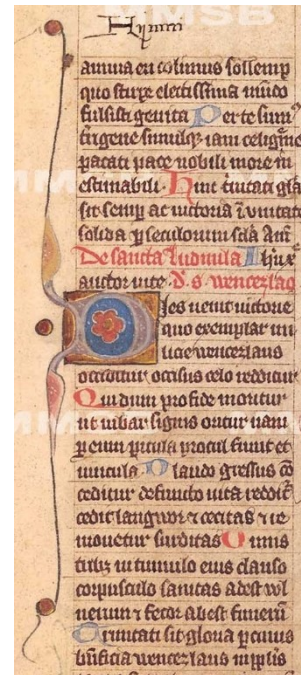 Hymni
annua en colimus sollemp
quo stirpe electissima mundo
fulsisti genita Per te sum
trigene simulq iam celigene
pacati pace nobili more in
estimabili. Hinc trinitati gla
sit semp ac victoria i unitate
solida p seculorum scla Am
De sancta ludmila Ihu x
auctor vite. D. s. wenczlao
Dies venit victorie
quo exemplar mi
licie wenczlaus
occiditur occisus celo redditur
Qui dum pro fide moritur
ut iubar signis oritur nam
p eum picula procul fiunt et
vincula Claudo gressus co
ceditur defuncto vita reddit
cedit langwor et cecitas et re
movetur surditas Omnis
in tumulo eius clauso
corpusculo sanitas adest vol
nerum et fetor abest funeru
Trinitati sit gloria p cuius
bnficia wenczlaus in pplis